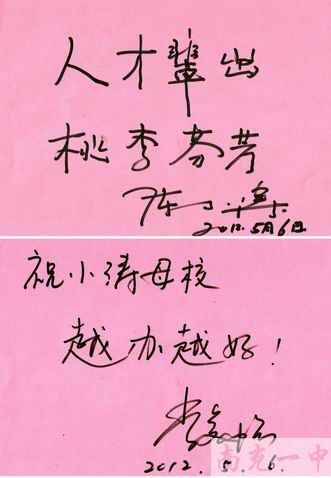 人才辈出
桃李芬芳
2012.5月6日
祝小涛母校
越办越好！
2012.5.6.
南充一中